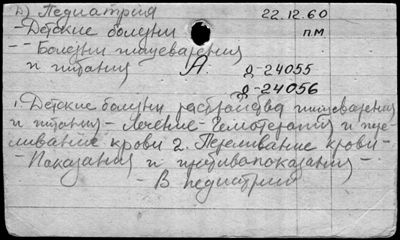 А) Педиатрия 22.12.60
-Детские болезни п.м
-- Болезни пищеварения
и питания А. д-24055
д-24056
1. Детские болезни расстройства пищеварения
и питания - Лечение - Гемотерапия и пере-
ливание крови 2. Переливание крови -
- Показания и противопоказания -
- В педиатрии